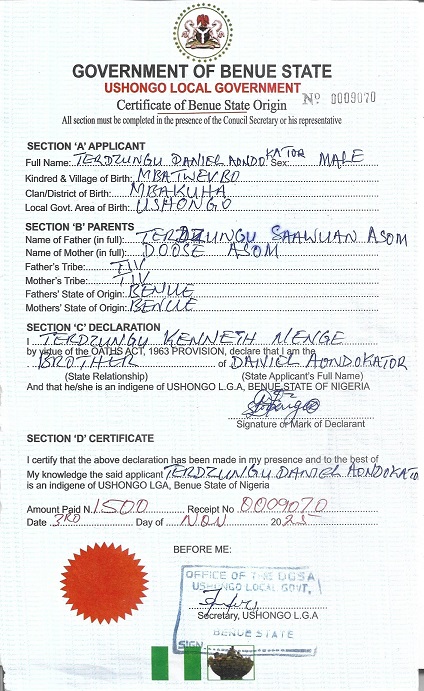 GOVERNMENT OF BENUE STATE
USHONGO LOCAL GOVERNMENT
Certificate of Benue State Origin Nº 0009070
All section must be completed in the presence of the Conucil Secretary or his representative
SECTION 'A' APPLICANT
Full Name: TERDZUNGU DANIEL AONDOKATOR Sex: MALE
Kindred & Village of Birth: MBATWEVBO
Clan/District of Birth: MBAKUHA
Local Govt. Area of Birth: USHONGO
SECTION 'B' PARENTS
Name of Father (in full): TERDZUNGU SAAWUAN ASOM
Name of Mother (in full): DOOSE ASOM
Father's Tribe: TIV
Mother's Tribe: TIV
Fathers' State of Origin: BENUE
Mothers' State of Origin: BENUE
SECTION 'C' DECLARATION
I TERDZUNGU KENNETH MENGE
by virtue of the OATHS ACT, 1963 PROVISION, declare that I am the
BROTHER of DANIEL AONDOKATOR
(State Relationship) (State Applicant's Full Name)
And that he/she is an indigene of USHONGO L.G.A, BENUE STATE OF NIGERIA
Signature or Mark of Declarant
SECTION 'D' CERTIFICATE
I certify that the above declaration has been made in my presence and to the best of
My knowledge the said applicant TERDZUNGU DANIEL AONDOKATO
is an indigene of USHONGO LGA, Benue State of Nigeria
Amount Paid N. 1500 Receipt No 0009070
Date 3RD Day of NOV 2025
BEFORE ME:
OFFICE OF THE DGSA
USHONGO LOCAL GOVT.
Secretary, USHONGO L.G.A
BENUE STATE
SIGN